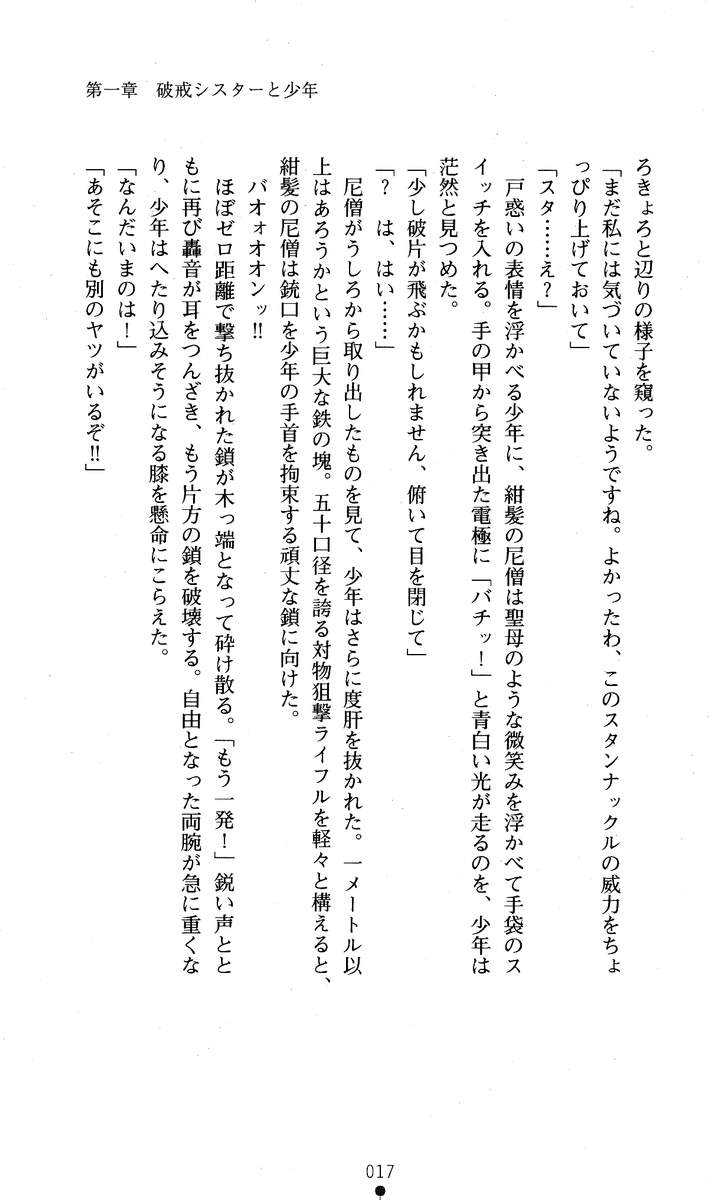 第一章　破戒シスターと少年
ろきょろと辺りの様子を窺った。
「まだ私には気づいていないようですね。よかったわ、このスタンナックルの威力をちょ
っぴり上げておいて」
「スタ……え？」
戸惑いの表情を浮かべる少年に、紺髪の尼僧は聖母のような微笑みを浮かべて手袋のス
イッチを入れる。手の甲から突き出た電極に「バチッ！」と青白い光が走るのを、少年は
茫然と見つめた。
「少し破片が飛ぶかもしれません、俯いて目を閉じて」
「？　は、はい……」
尼僧がうしろから取り出したものを見て、少年はさらに度肝を抜かれた。一メートル以
上はあろうかという巨大な鉄の塊。五十口径を誇る対物狙撃ライフルを軽々と構えると、
紺髪の尼僧は銃口を少年の手首を拘束する頑丈な鎖に向けた。
バオォオオンッ!!
ほぼゼロ距離で撃ち抜かれた鎖が木っ端となって砕け散る。「もう一発！」鋭い声とと
もに再び轟音が耳をつんざき、もう片方の鎖を破壊する。自由となった両腕が急に重くな
り、少年はへたり込みそうになる膝を懸命にこらえた。
「なんだいまのは！」
「あそこにも別のヤツがいるぞ!!」
017